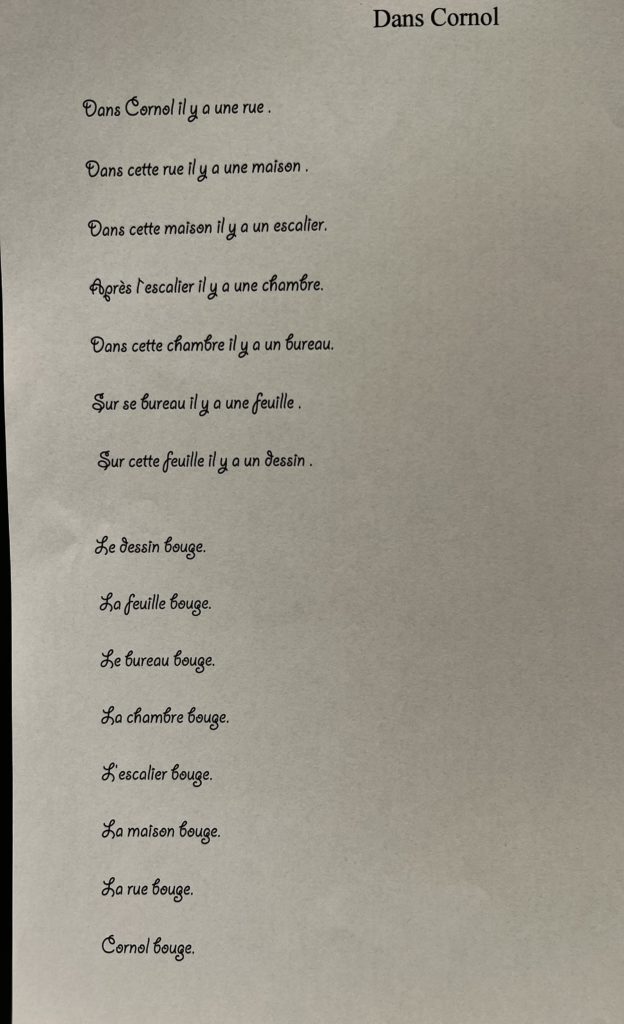 Dans Cornol
Dans Cornol il y a une rue .
Dans cette rue il y a une maison .
Dans cette maison il y a un escalier.
Après l'escalier il y a une chambre.
Dans cette chambre il y a un bureau.
Sur se bureau il y a une feuille .
Sur cette feuille il y a un dessin .
Le dessin bouge.
La feuille bouge.
Le bureau bouge.
La chambre bouge.
L'escalier bouge.
La maison bouge.
La rue bouge.
Cornol bouge.